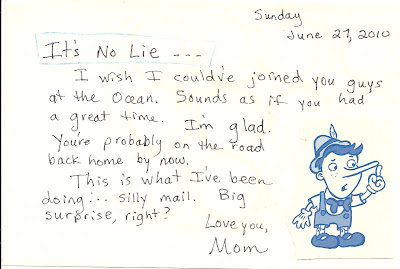 Sunday
June 27, 2010
It's No Lie ---
I wish I could've joined you guys
at the Ocean. Sounds as if you had
a great time. I'm glad.
You're probably on the road
back home by now.
This is what I've been
doing... silly mail. Big
surprise, right?
Love you,
Mom